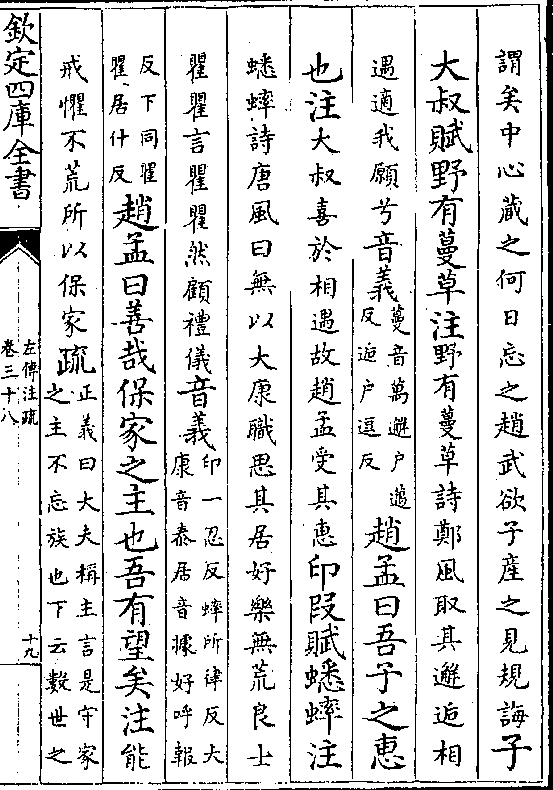 謂矣中心藏之何日忘之趙武欲子産之見規誨子
大叔賦野有蔓草注野有蔓草詩鄭風取其邂逅相
遇適我願兮音義蔓音萬邂户邂
反逅户逅反趙孟曰吾子之惠
也注大叔喜於相遇故趙孟受其惠印段賦蟋蟀注
蟋蟀詩唐風曰無以大康職思其居好樂無荒良士
瞿瞿言瞿瞿然顧禮儀音義印一忍反蟀所律反大
康音泰居音據好呼報
反下同瞿
瞿居什反趙孟曰善哉保家之主也吾有望矣注能
戒懼不荒所以保家疏正義曰大夫稱主言是守家
之主不忘族也下云數世之
欽定四庫全書
左傳注疏
卷三十八
十九